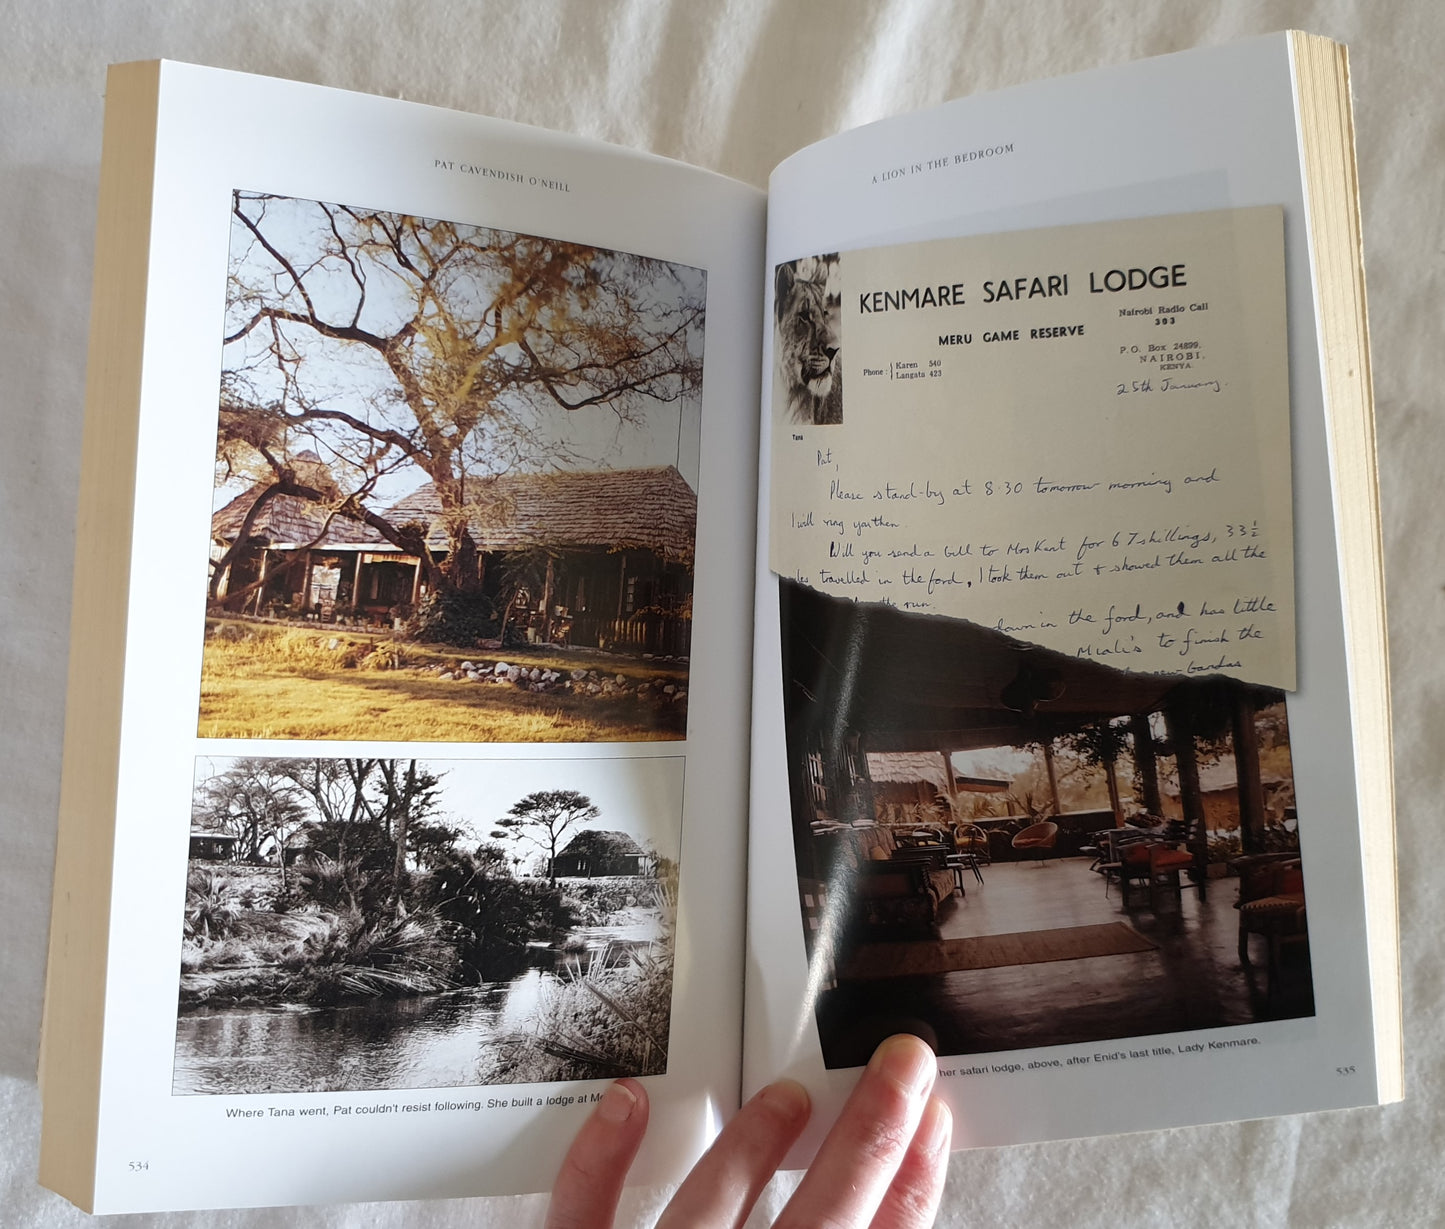 PAT CAVENDISH O'NEILL
Where Tana went, Pat couldn't resist following. She built a lodge at
534
A LION IN THE BEDROOM
KENMARE SAFARI LODGE
MERU GAME RESERVE
Nairobi Radio Call
303
Phone: Karen 540
Langata 423
P.O. Box 24899,
NAIROBI,
KENYA.
25th January.
Tana
Pat,
Please stand-by at 8.30 tomorrow morning and
I will ring you then.
Will you send a bill to Mrs Kent for 67 shillings, 33½
les travelled in the ford, I took them out & showed them all the
the run.
down in the ford, and has little
to finish the
bandas
her safari lodge, above, after Enid's last title, Lady Kenmare.
535